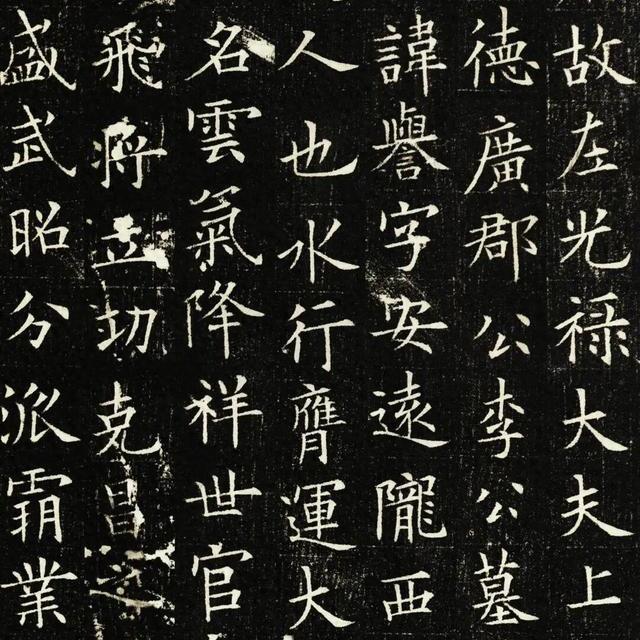 故左光禄大夫上
德廣郡公李公墓
諱譽字安遠隴西
人也水行膺運大
名雲氣降祥世官
飛將立功克昌
盛武昭分派霸業